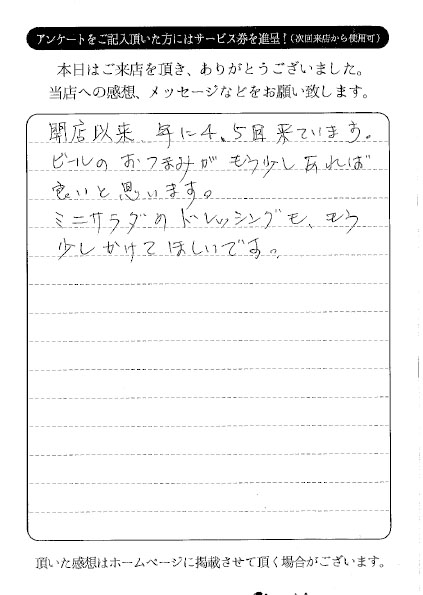 アンケートをご記入頂いた方にはサービス券を進呈!(次回来店から使用可)
本日はご来店を頂き、ありがとうございました。
当店への感想、メッセージなどをお願い致します。
開店以来 年に4、5回来ています。
ビールのおつまみがもう少しあれば
良いと思います。
ミニサラダのドレッシングも、もう
少しかけてほしいです。
頂いた感想はホームページに掲載させて頂く場合がございます。